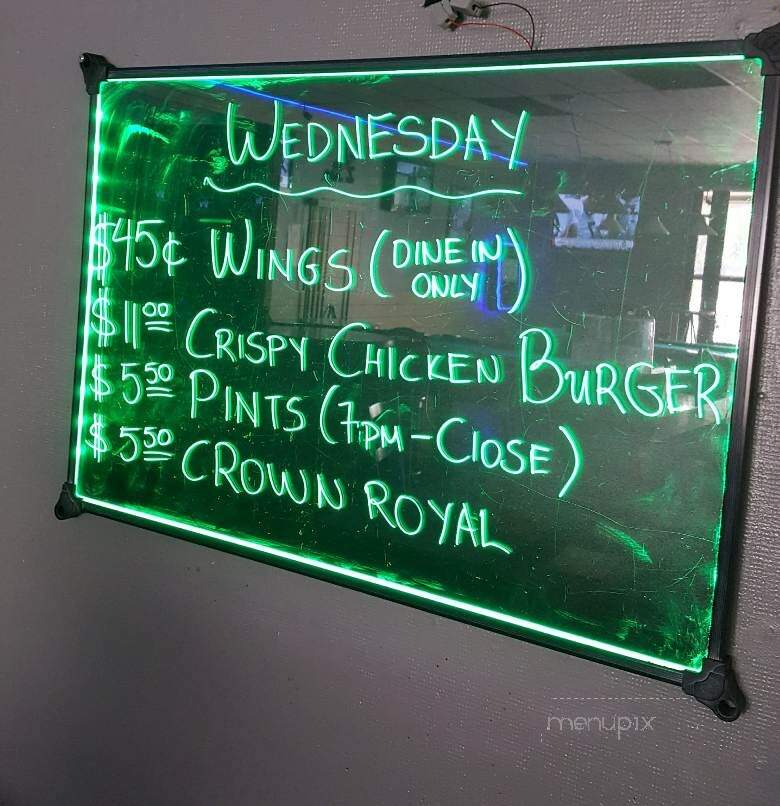 WEDNESDAY
$45¢ WINGS (DINE IN ONLY)
$11.00 CRISPY CHICKEN BURGER
$5.50 PINTS (7PM-CLOSE)
$5.50 CROWN ROYAL
menupix